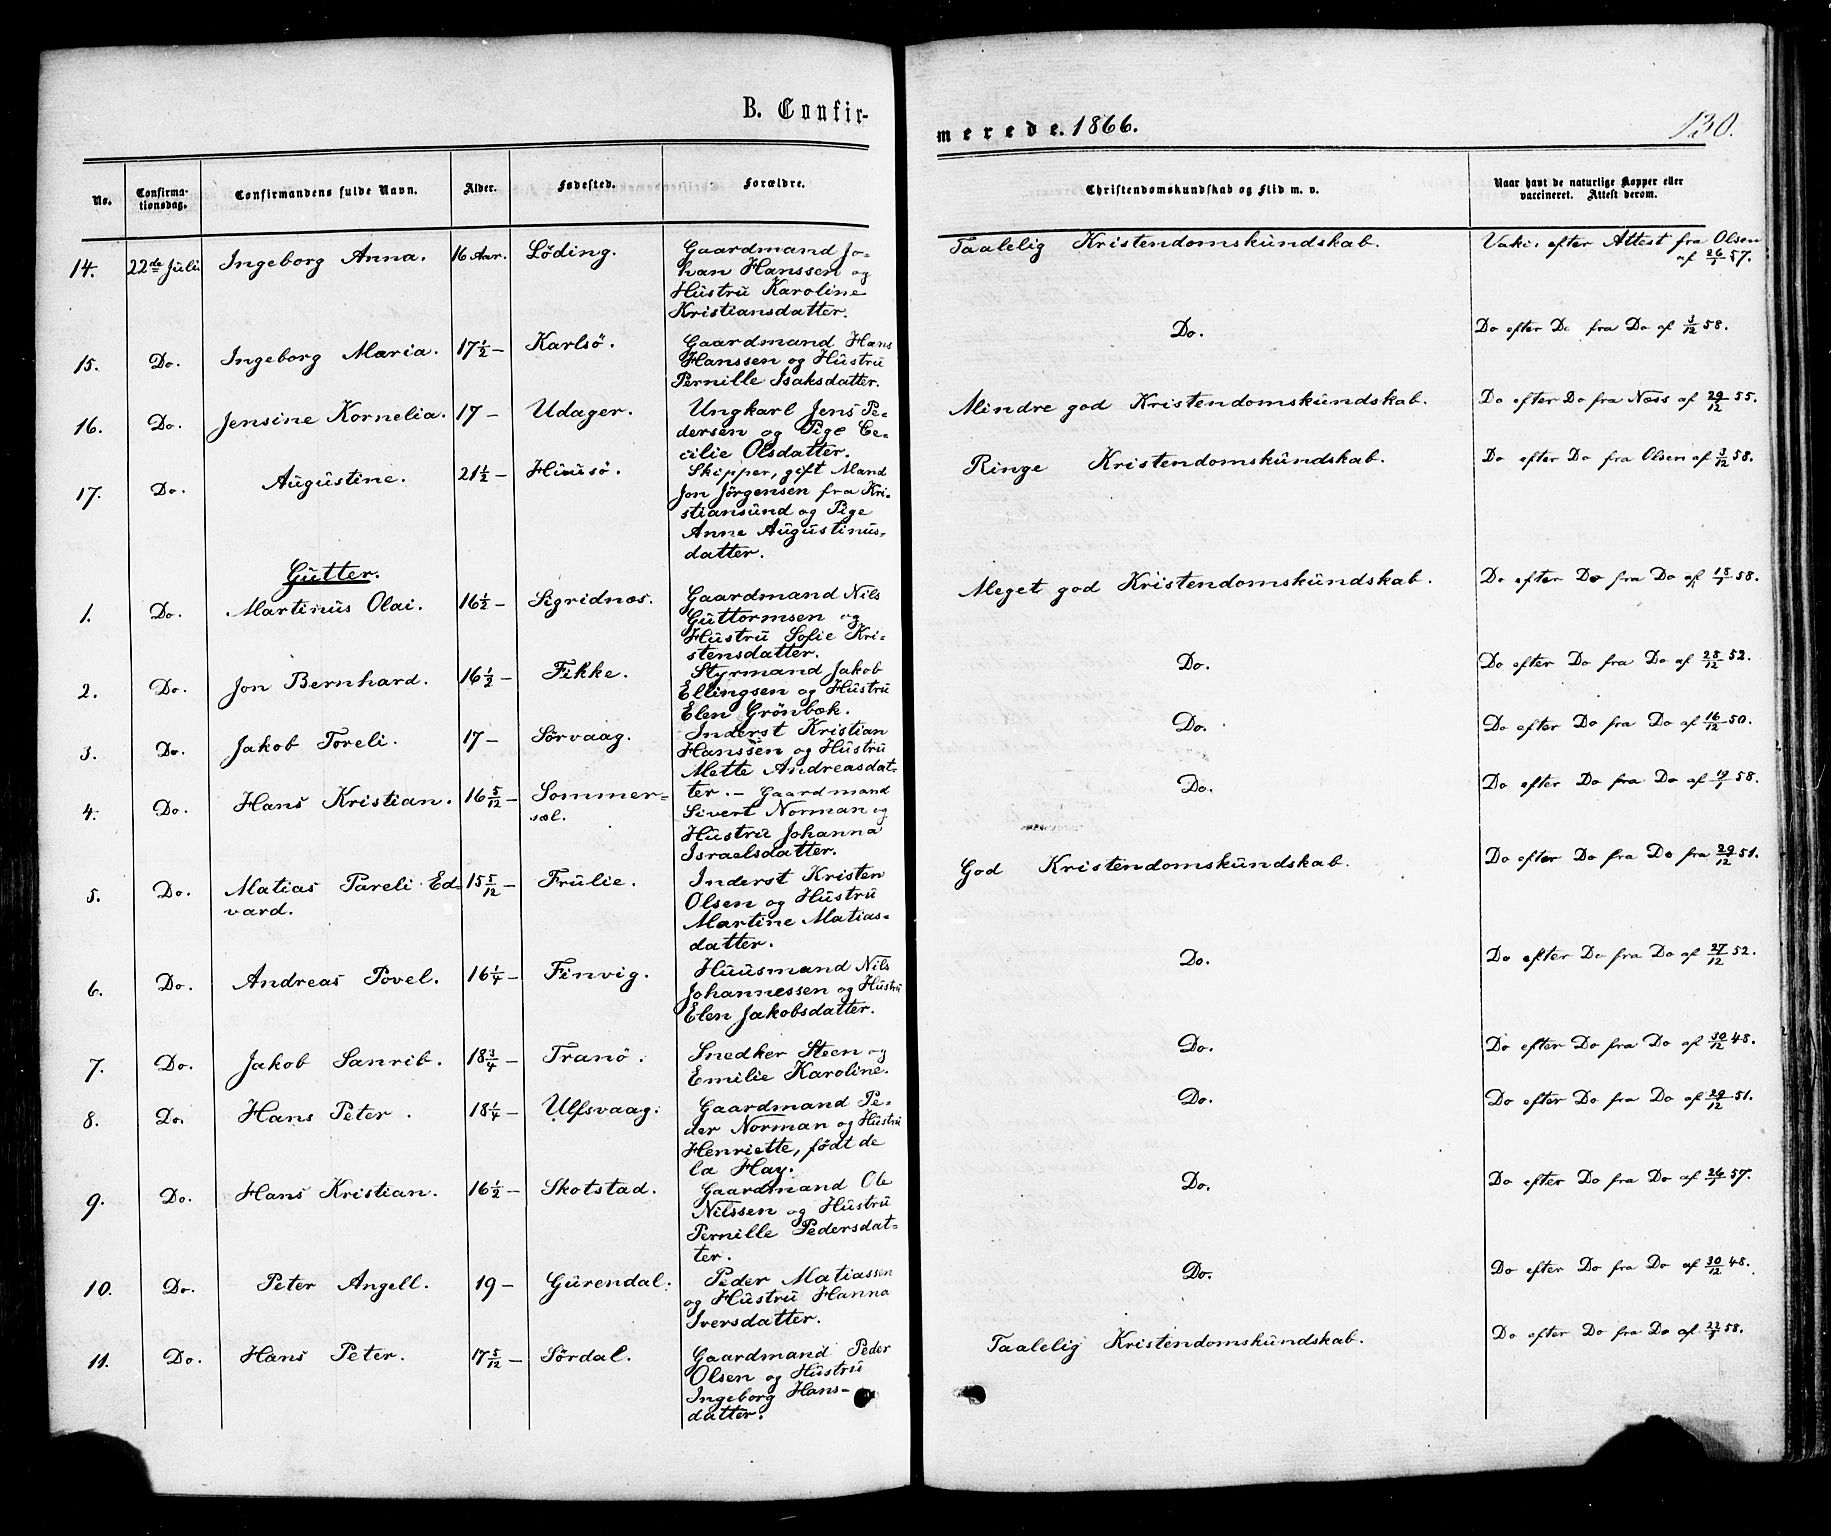 B. Confir-
merede. 1866.
130.
No.
Confirma-
tionsdag.
Confirmandens fulde Navn.
Alder.
Fødested.
Forældre.
Christendomskundskab og Flid m. v.
Naar havt de naturlige Kopper eller
vaccineret. Attest derom.
14. 22de Juli Ingeborg Anna. 16 Aar. Löding. Gaardmand Jo-
han Hanssen og
Hustru Karoline
Kristiansdatter.
Taalelig Kristendomskundskab. Vaki. efter Attest fra Olsen
af 26/1 57.
15. Do. Ingeborg Maria. 17 1/2 – Karlsö. Gaardmand Hans
Hanssen og Hustru
Pernille Isaksdatter.
Do. Do efter Do fra Do af 3/12 58.
16. Do. Jensine Kornelia. 17 – Udager. Ungkarl Jens Pe-
dersen og Pige Ce-
cilie Olsdatter.
Mindre god Kristendomskundskab. Do efter Do fra Næss af 29/12 55.
17. Do. Augustine. 21 1/2 – Skipper, gift Mand
Jon Jörgensen fra Kri-
stiansund og Pige
Anne Augustinus-
datter.
Ringe Kristendomskundskab. Do efter Do fra Olsen af 3/12 58.
Gutter.
1. Do. Martinus Olai. 16 1/2 – Sigridnæs. Gaardmand Nils
Guttormsen og
Hustru Sofie Kri-
stensdatter.
Meget god Kristendomskundskab. Do efter Do fra Do af 18/1 58.
2. Do. Jon Bernhard. 16 1/2 – Fikke. Styrmand Jakob
Ellingsen og Hustru
Elen Grönbæk.
Do. Do efter Do fra Do af 28/12 52.
3. Do. Jakob Toreli. 17 – Sørvaag. Inderst Kristian
Hanssen og Hustru
Mette Andreasdat-
ter. –
Do. Do efter Do fra Do af 16/12 50.
4. Do. Hans Kristian. 16 5/12 – Sommer-
sæl. Gaardmand
Sivert Norman og
Hustru Johanna
Israelsdatter.
Do. Do efter Do fra Do af 19/1 58.
5. Do. Matias Pareli Ed-
vard. 15 5/12 – Frulie. Inderst Kristen
Olsen og Hustru
Martine Matias-
datter.
God Kristendomskundskab. Do efter Do fra Do fra 29/12 51.
6. Do. Andreas Povel. 16 1/4 – Finvig. Huusmand Nils
Johannessen og Hustru
Elen Jakobsdatter.
Do. Do efter Do fra Do af 27/12 52.
7. Do. Jakob Sanrib. 18 3/4 – Tranö. Snedker Steen og
Emilie Karoline.
Do. Do efter Do fra Do af 30/12 48.
8. Do. Hans Peter. 18 1/4 – Ulfsvaag. Gaardmand Pe-
der Norman og Hustru
Henriette, født de
la Hay.
Do. Do efter Do fra Do af 29/12 51.
9. Do. Hans Kristian. 16 1/2 – Skotstad. Gaardmand Ole
Nilssen og Hustru
Pernille Pedersdat-
ter.
Do. Do efter Do fra Do af 26/1 57.
10. Do. Peter Angell. 19 – Gurendal. Peder Matiassen
og Hustru Hanna
Iversdatter.
Do. Do efter Do fra Do af 30/12 48.
11. Do. Hans Peter. 17 5/12 – Sørdal. Gaardmand Peder
Olsen og Hustru
Ingeborg Hans-
datter.
Taalelig Kristendomskundskab. Do efter Do fra Do af 22/1 58.